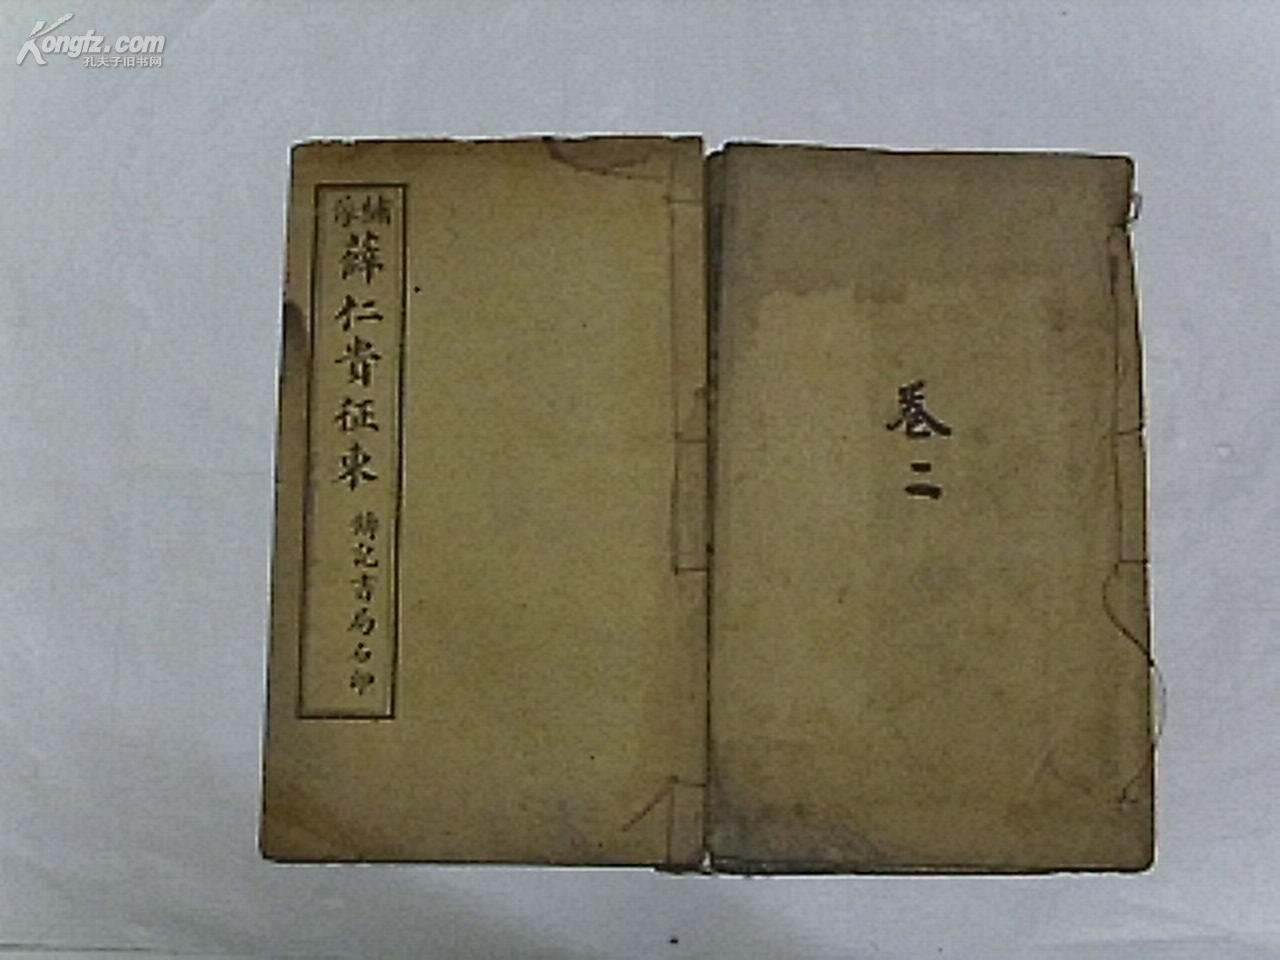 Kongfz.com
孔夫子旧书网
繡像
薛仁貴征東
鑄記書局石印
卷二